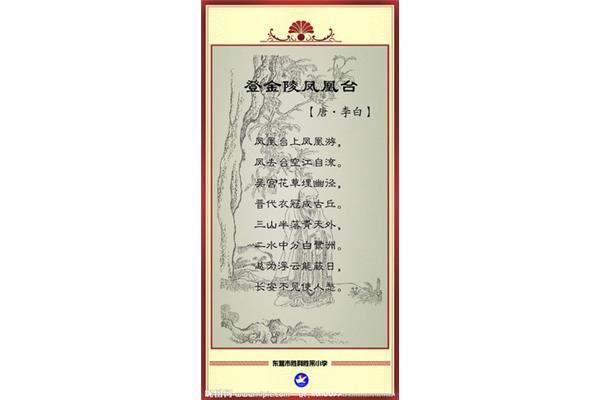 登金陵凤凰台
【唐·李白】
凤凰台上凤凰游，
凤去台空江自流。
吴宫花草埋幽径，
晋代衣冠成古丘。
三山半落青天外，
二水中分白鹭洲。
总为浮云能蔽日，
长安不见使人愁。
东营市胜利胜采小学
昵图网 www.nipic.com